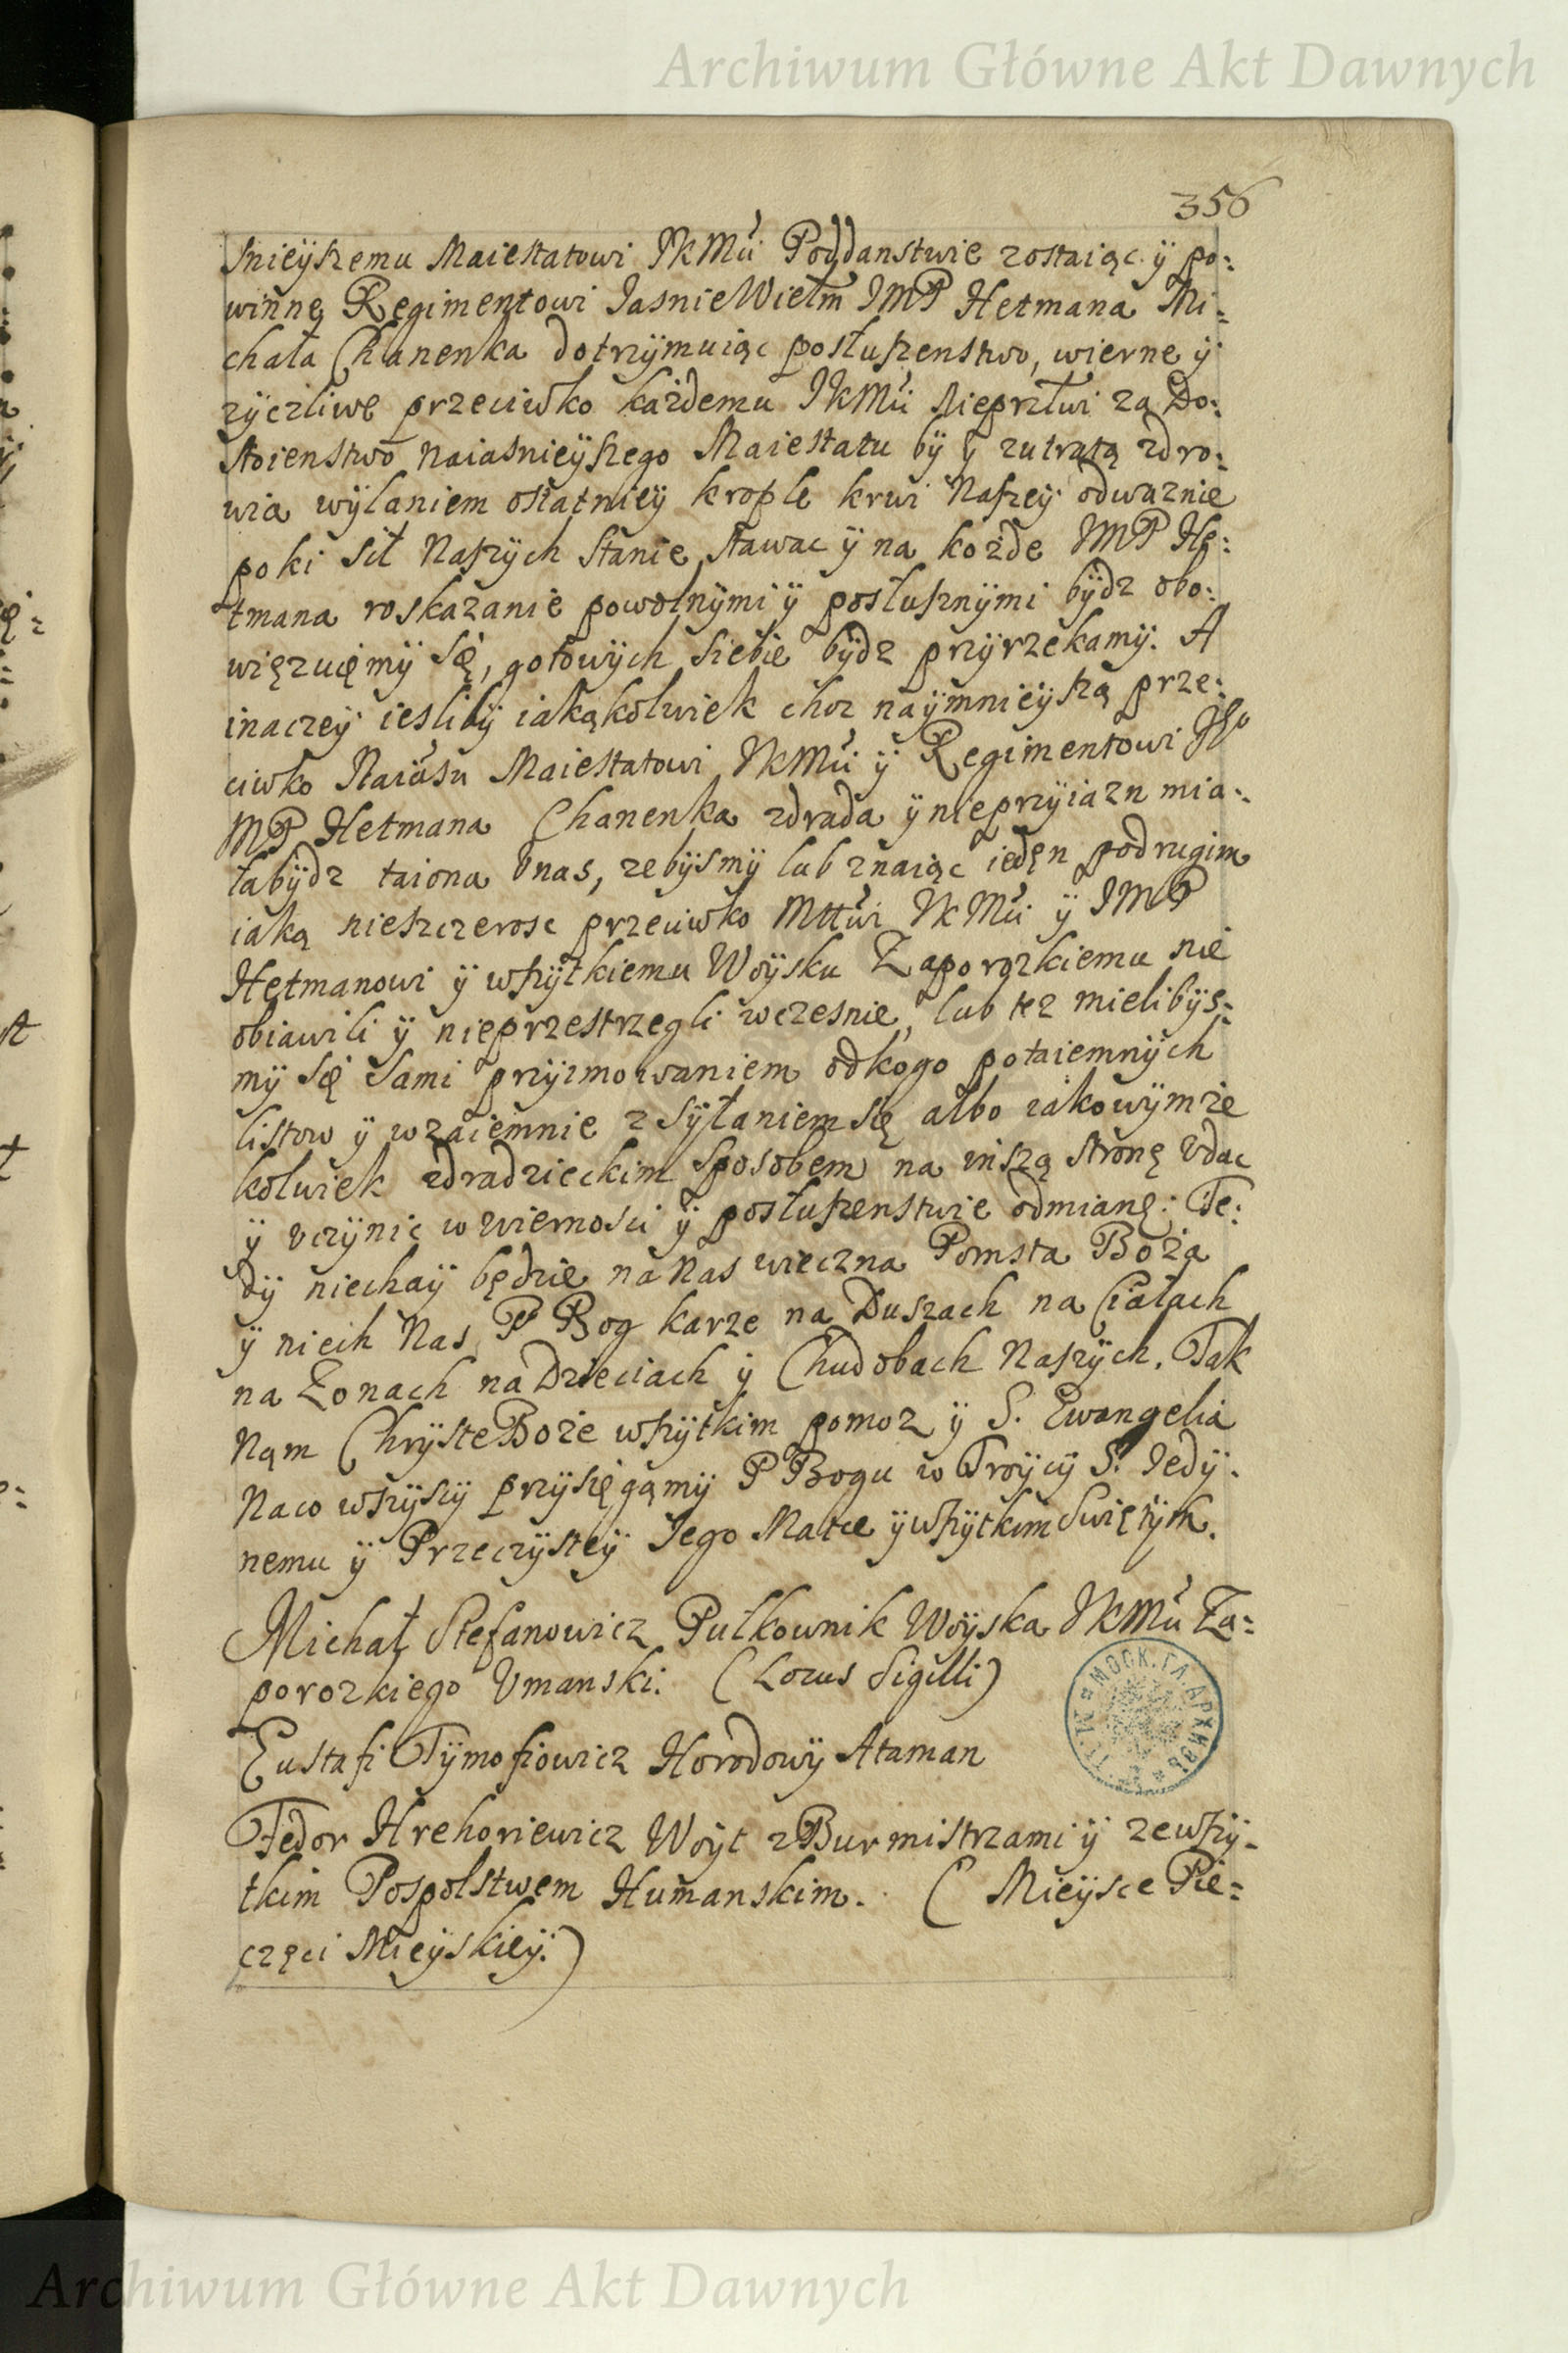 Archiwum Główne Akt Dawnych
356
snieÿszemu Maiestatowi JKMći Poddanstwie zostaiąc ÿ po:
winnę Regimentowi JasnieWielm JMP Hetmana Mi:
chała Chanenka dotrzÿmuiąc posłuszenstwo, wierne ÿ
zÿczliwe przeciwko każdemu JKMći Nieprzłwi za Do:
stoienstwo Naiasnieÿszego Maiestatu bÿ ÿ zutratą zdro:
wia wÿlaniem ostatnieÿ krople krwi Naszeÿ odwaznie
poki sił Naszÿch stanie stawac ÿ na kożde JMP He:
tmana roskazanie powolnÿmi ÿ posłusznÿmi bÿdz obo:
więzuięmÿ się, gotowÿch siebie bÿdz przÿrzekamÿ. A
inaczeÿ ieslibÿ iakąkolwiek choz naÿmnieÿszą prze:
ciwko Naiasn Maiestatowi JKMći ÿ Regimentowi Jgo
MP Hetmana Chanenka zdrada ÿ nieprzÿiazn mia:
łabÿdz taiona Unas, zebÿsmÿ lub znaiąc ieden podrugim
iaką nieszczerosc przeciwko Mttwi JKMći ÿ JMP
Hetmanowi ÿ wszÿtkiemu Woÿsku Zaporozkiemu nie
obiawili ÿ nieprzestrzegli wczesnie, lub tez mielibÿs:
mÿ się sami przÿimowaniem odkogo potaiemnÿch
listow ÿ wzaiemnie zsÿłaniem się albo iakowÿmze
kolwiek zdradzieckim sposobem na inszą stronę Udac
ÿ uczÿnic w wiernosci ÿ posłuszenstwie odmianę: Te:
dÿ niechaÿ będzie na Nas wieczna Pomsta Boża
ÿ niech Nas P Bog karze na Duszach na Ciałach
na Zonach na Dzieciach ÿ Chudobach Naszÿch. Tak
Nąm Chrÿste Boże wszÿtkim pomoz ÿ S. Ewangelia
Naco wszÿscÿ przÿsięgąmÿ P Bogu w Troÿcÿ S. Jedÿ:
nemu ÿ Przeczÿsteÿ Jego Matce ÿ wszÿtkim Swiętÿm.
Michał Stefanowicz Pułkownik Woÿska JKMći Za:
porozkiego Umanski. (Locus Sigilli)
Eustafi Tÿmofiowicz Horodowÿ Ataman
Fedor Hrehoriewicz Woÿt z Burmistrzami ÿ zewszÿ-
tkim Pospolstwem Humanskim. (Mieÿsce Pie:
częci Mieÿskieÿ.)
МОСК. ГЛ. АРХИВЪ
Archiwum Główne Akt Dawnych